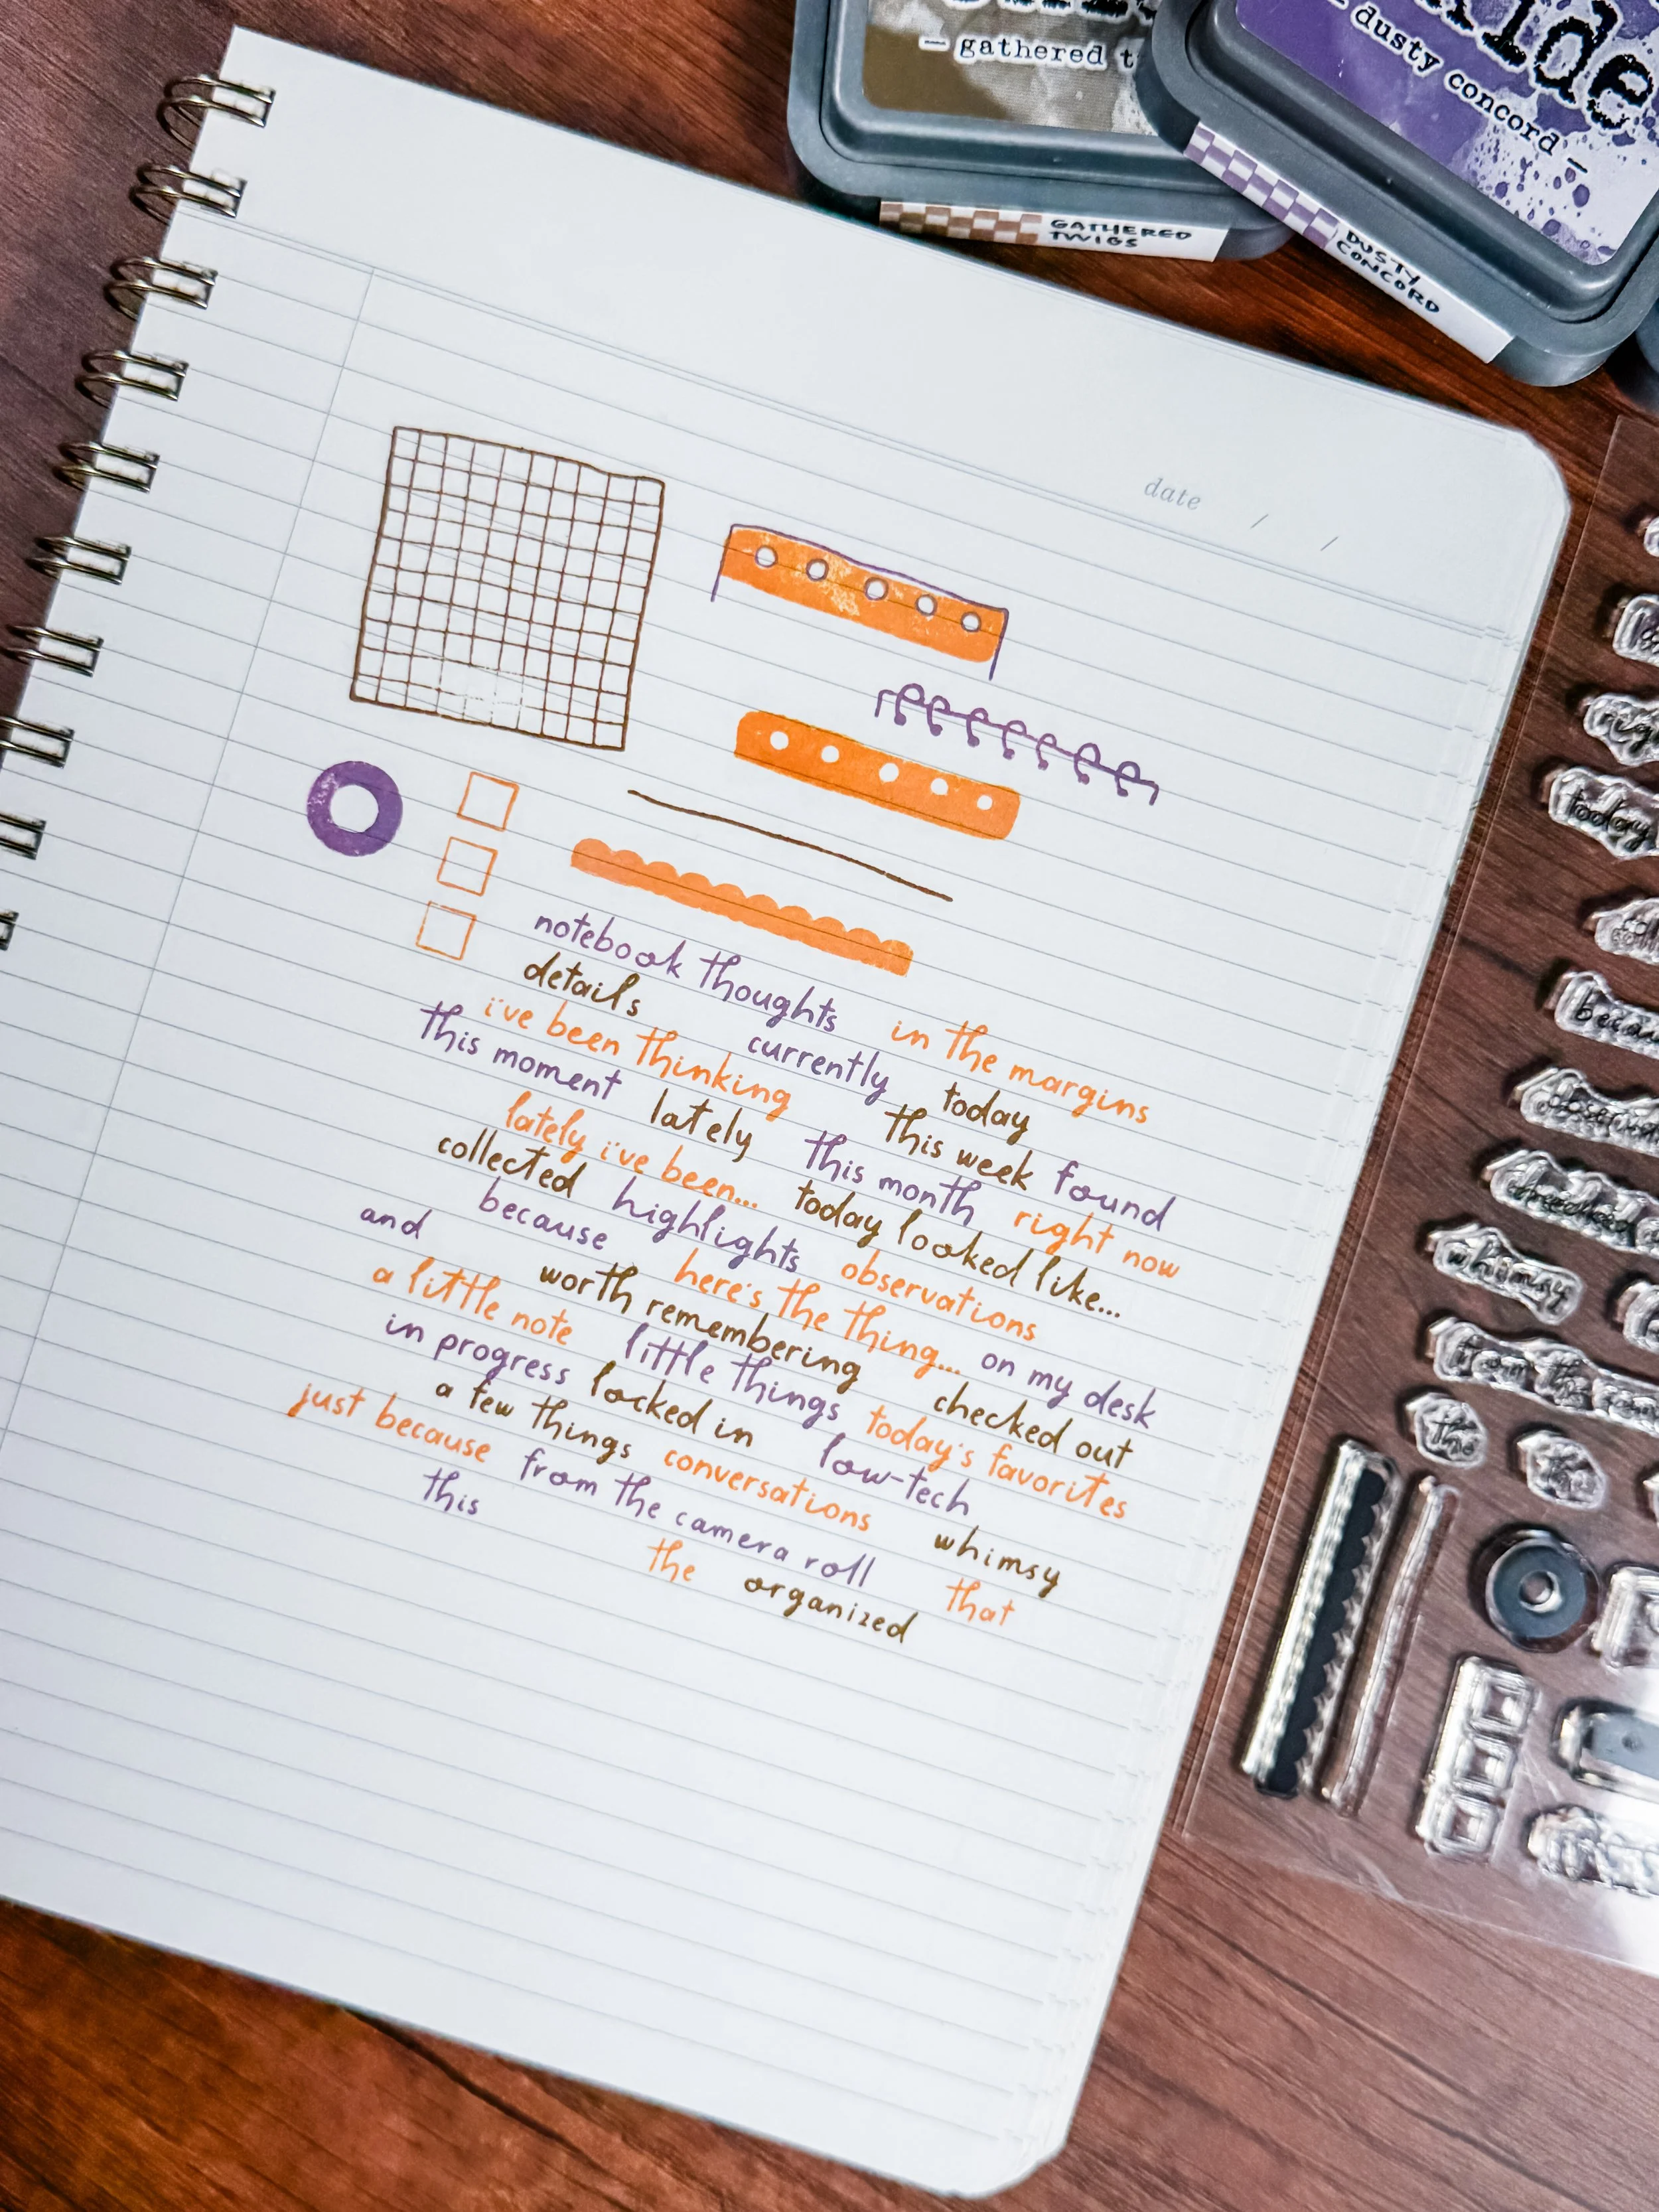 gathered
dusty concord
GATHERED
TWIGS
DUSTY
CONCORD
date / /
notebook thoughts in the margins
details currently today
i've been thinking this week found
this moment lately this month right now
lately i've been... today looked like...
collected highlights observations
because here's the thing... on my desk
and worth remembering checked out
a little note little things today's favorites
in progress locked in low-tech
a few things conversations whimsy
just because from the camera roll that
this the organized
today
whimsy
the